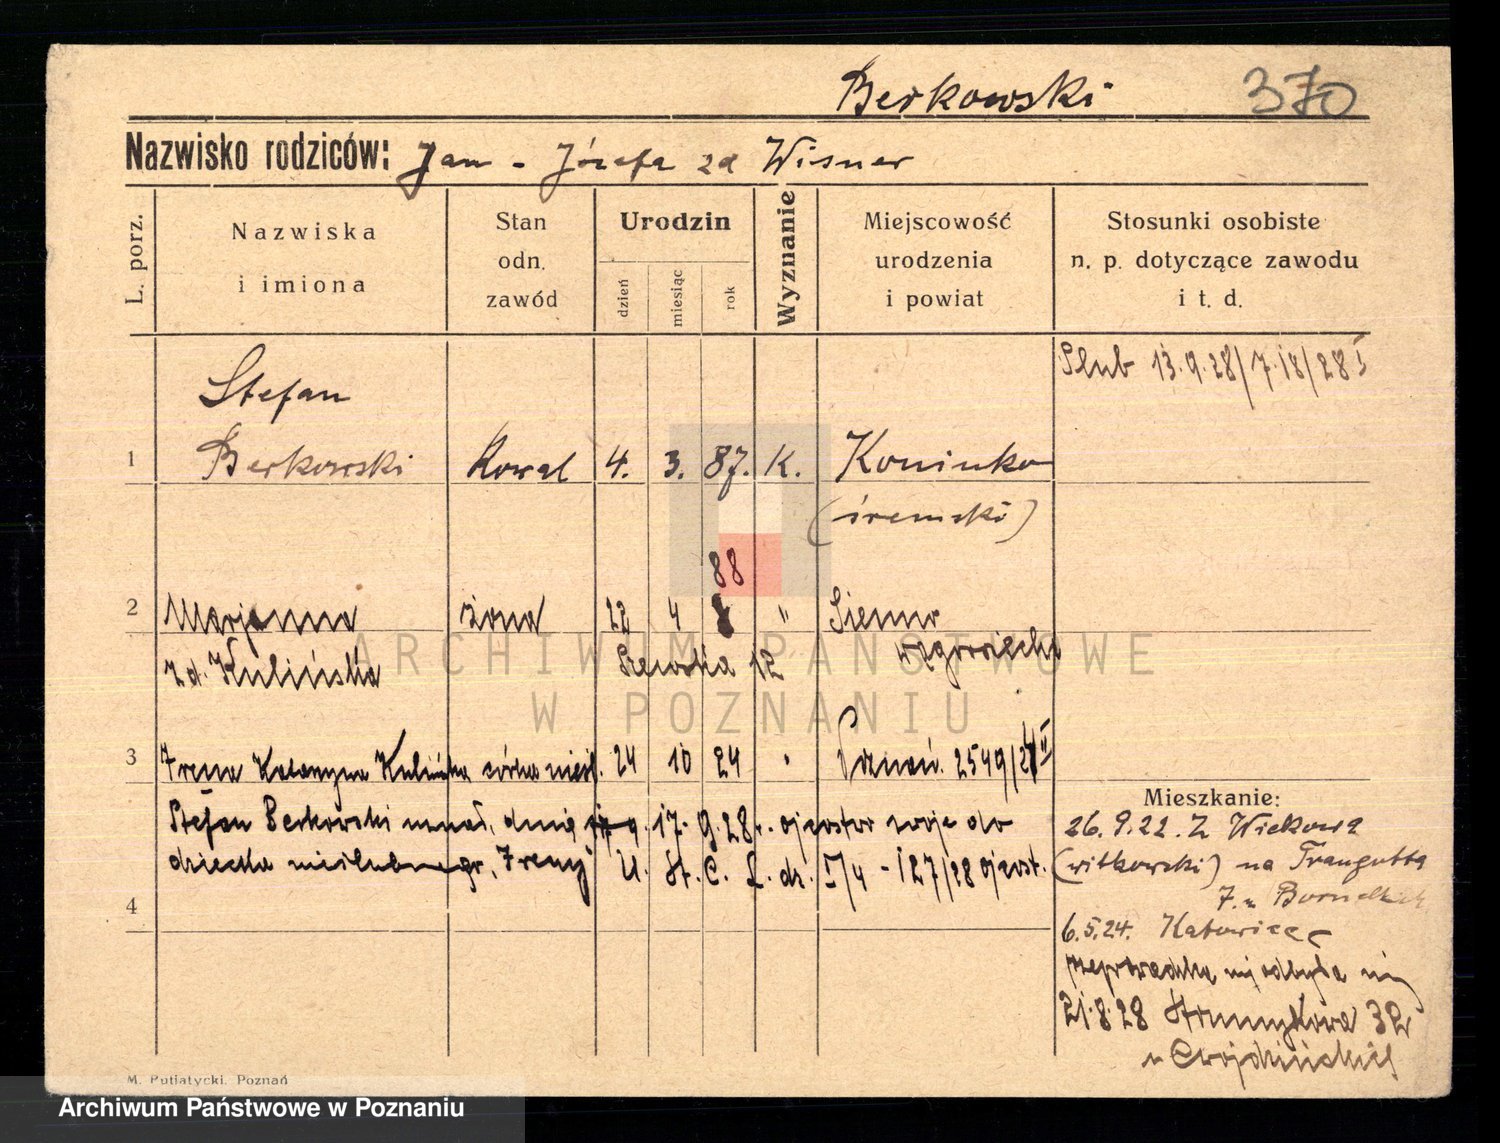 Berkowski 370
Nazwisko rodziców: Jan - Józefa zd Wisner
L. porz.
Nazwiska
i imiona
Stan
odn.
zawód
Urodzin
dzień
miesiąc
rok
Wyznanie
Miejscowość
urodzenia
i powiat
Stosunki osobiste
n. p. dotyczące zawodu
i t. d.
Ślub 13.9.28/7.18/28 I
Stefan
1 Berkowski Kowal 4. 3. 87. K. Koninko
(śremski)
88
2 Marjanna żona 22 4 " Sienno
zd. Kulińska Szewska 12 wągrowiecki
3 Irena Katarzyna Kulińska córka nieśl. 24 10 24 " Poznań. 2549/24 II
Stefan Berkowski uznał, dnia 17. 9. 28 r. ojcostwo swoje do
dziecka nieślubnego, Ireny U. St. C. I/4 - 127/28 ojcost.
4
Mieszkanie:
26.9.22. Z Wiekowa
(witkowski) na Traugutta
7. u
6.5.24. Katowice
przeprowadzka odbyła się
21.8.28 Strumykowa 32
u Cwojdzińskiej
M. Putiatycki. Poznań
ARCHIWUM PAŃSTWOWE
W POZNANIU
Archiwum Państwowe w Poznaniu